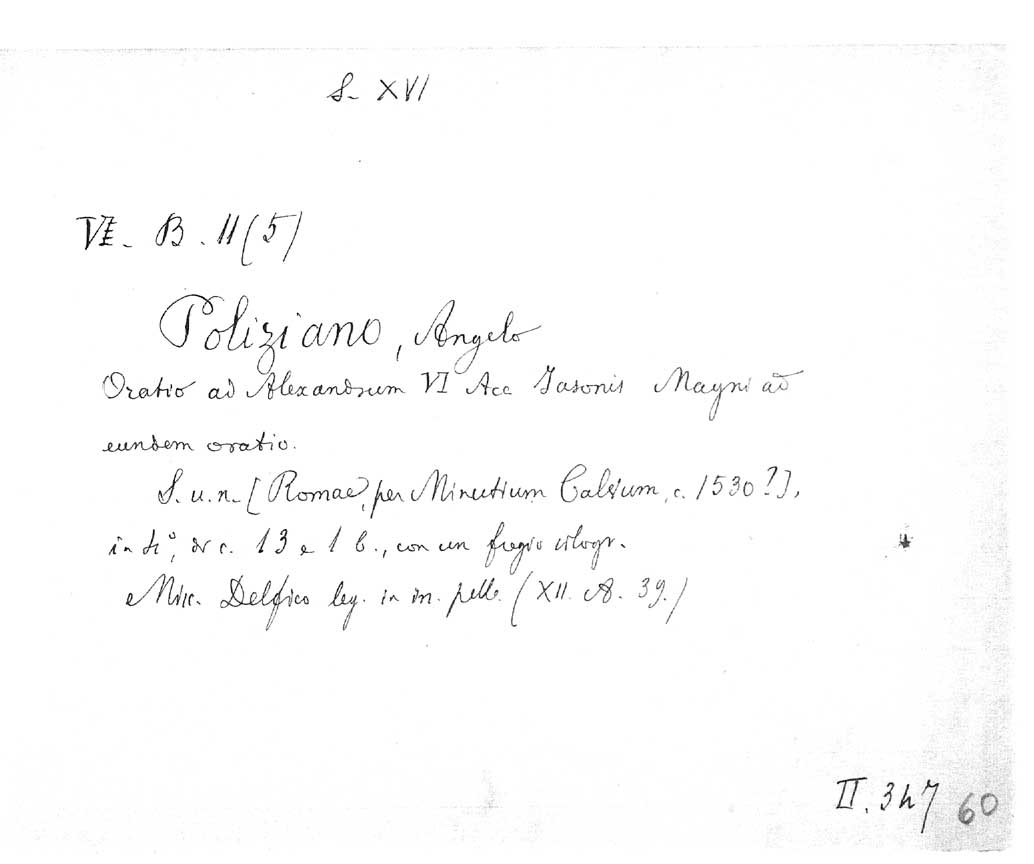 S. XVI
VI. B. 11 (5)
Poliziano, Angelo
Oratio ad Alexandrum VI Acc Iasonis Mayni ad
eundem oratio.
S. u. n. [Romae, per Minutium Calvum, c. 1530?],
in 4°, di c. 13 e 1 b., con un fregio xilogr.
Misc. Delfico leg. in m. pelle. (XII. A. 39.)
II. 347
60